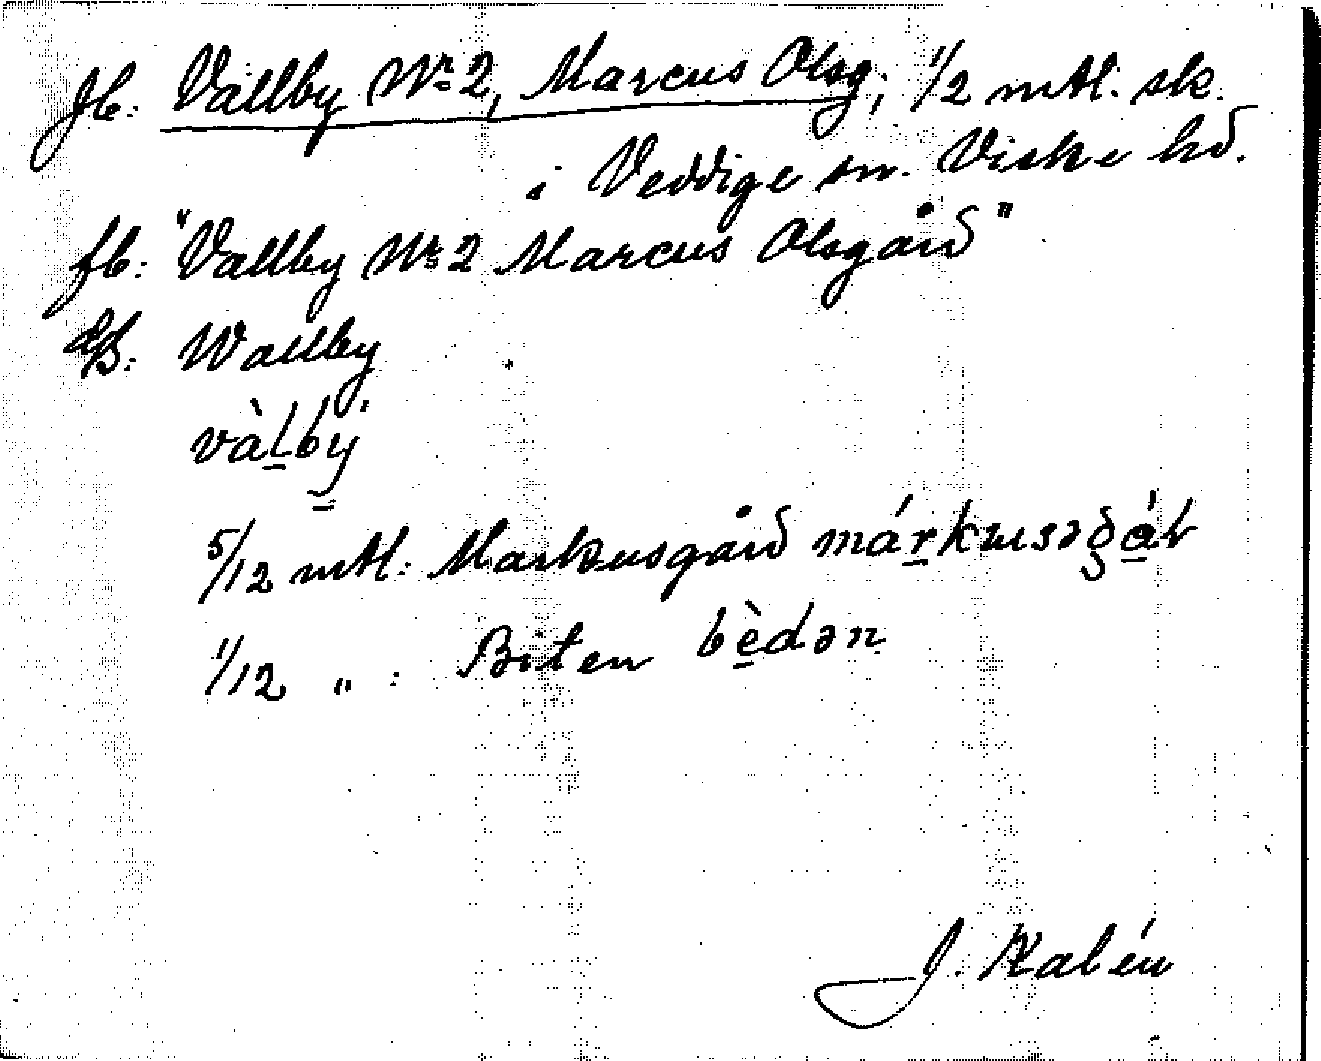 Jb: Vallby No 2, Marcus Olsg; 1/2 mtl. sk.
i Veddige sn. Viske hd.
fb: "Vallby No 2 Marcus Olsgård"
Wallby
vàlby
5/12 mtl: Markusgård
1/12 " : Biten bèdən
J. Kalén